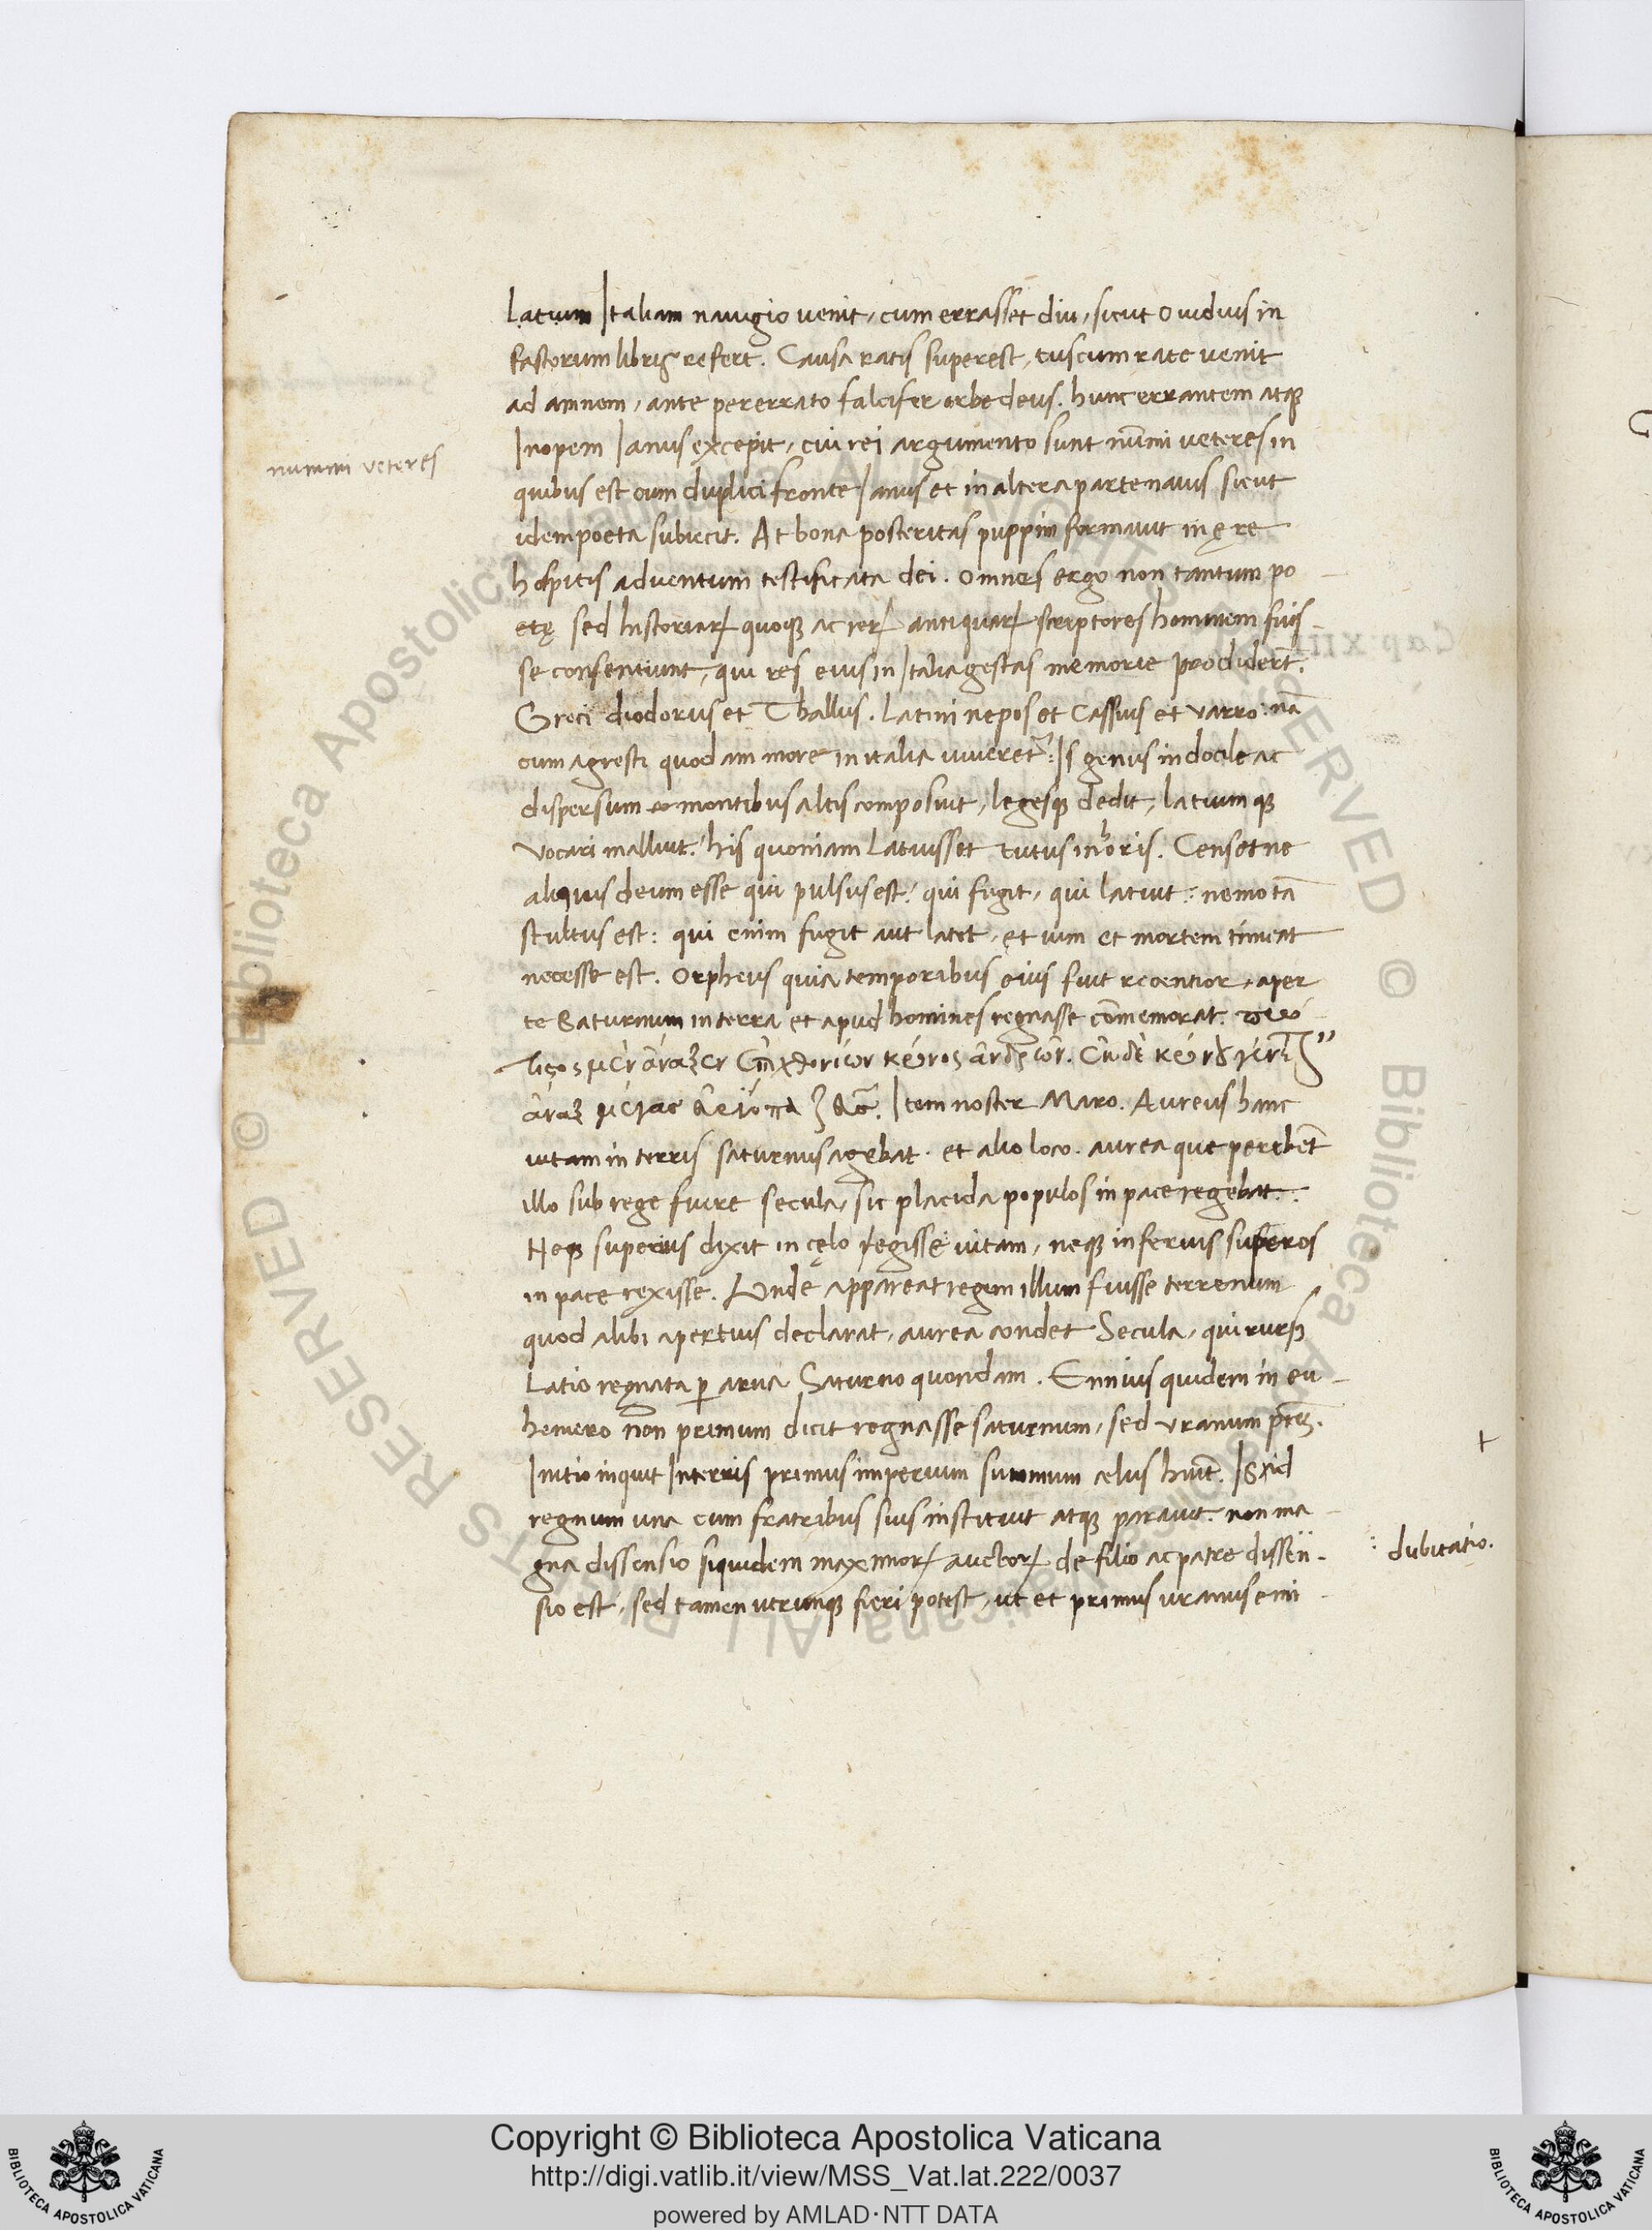 Latium Italiam nauigio uenit, cum errasset diu, sicut Ouidius in
fastorum libris refert. Causa ratis superest, tuscum rate uenit
ad amnem, ante pererrato falcifer orbe deus. hunc errantem atqꝫ
Inopem Ianus excepit, cui rei argumento sunt nūmi ueteres in
nummi veteres
quibus est cum duplici fronte Ianus et in altera parte nauis sicut
idem poeta subiecit. At bona posteritas puppim formauit in ęre
hospitis aduentum testificata dei. Omnes ergo non tantum po
etę sed historiaꝝ quoqꝫ ac reꝝ antiquaꝝ scriptores hominem fuis
se consentiunt, qui res eius in Italia gestas memorie prodiderūt.
Greci diodorus et Thallus. Latini nepos et Cassius et varro. nā
cum agresti quodam more in italia uiueret: Is genus indocile ac
dispersum montibus altis composuit, legesqꝫ dedit, latium qꝫ
vocari malluit. his quoniam latuisset tutus in horis. Censet ne
aliquis deum esse qui pulsus est? qui fugit, qui latuit: nemo tā
stultus est: qui enim fugit aut latet, et uim et mortem timeat
necesse est. Orpheus quia temporibus eius fuit recentior, aper
te Saturnum in terra et apud homines regnasse cōmemorat.
Item noster Maro. Aureus hanc
uitam in terris saturnus agebat. et alio loco. aurea que perhibēt
illo sub rege fuere secula, sic placida populos in pace regebat.
Neqꝫ superius dixit in cęlo regisse uitam, neqꝫ inferius superos
in pace rexisse. Unde appareat regem illum fuisse terrenum
quod alibi apertius declarat, aurea condet Secula, qui rursꝰ
Latio regnata ꝑ arua Saturno quondam. Ennius quidem in eu
hemero non primum dicit regnasse saturnum, sed vranum
Initio inquit In terris primus imperium summum celus
regnum una cum fratribus suis instituit atqꝫ parauit. non ma
gna dissensio siquidem maximoꝝ auctoꝝ de filio ac patre dissen
dubitatio.
sio est, sed tamen utrunqꝫ fieri potest, ut et primus uranus emi
Copyright © Biblioteca Apostolica Vaticana
http://digi.vatlib.it/view/MSS_Vat.lat.222/0037
powered by AMLAD·NTT DATA